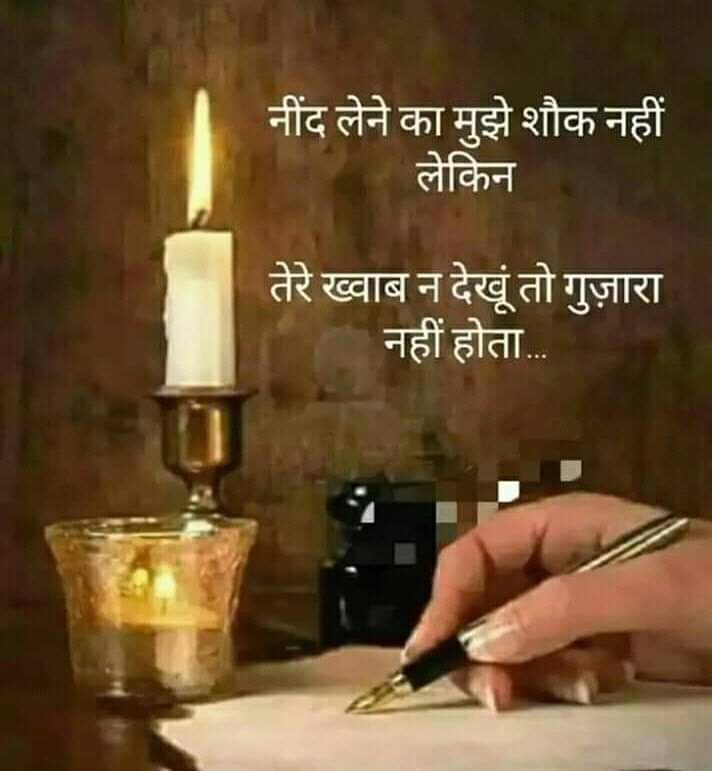 नींद लेने का मुझे शौक नहीं
लेकिन
तेरे ख्वाब न देखूं तो गुज़ारा
नहीं होता...